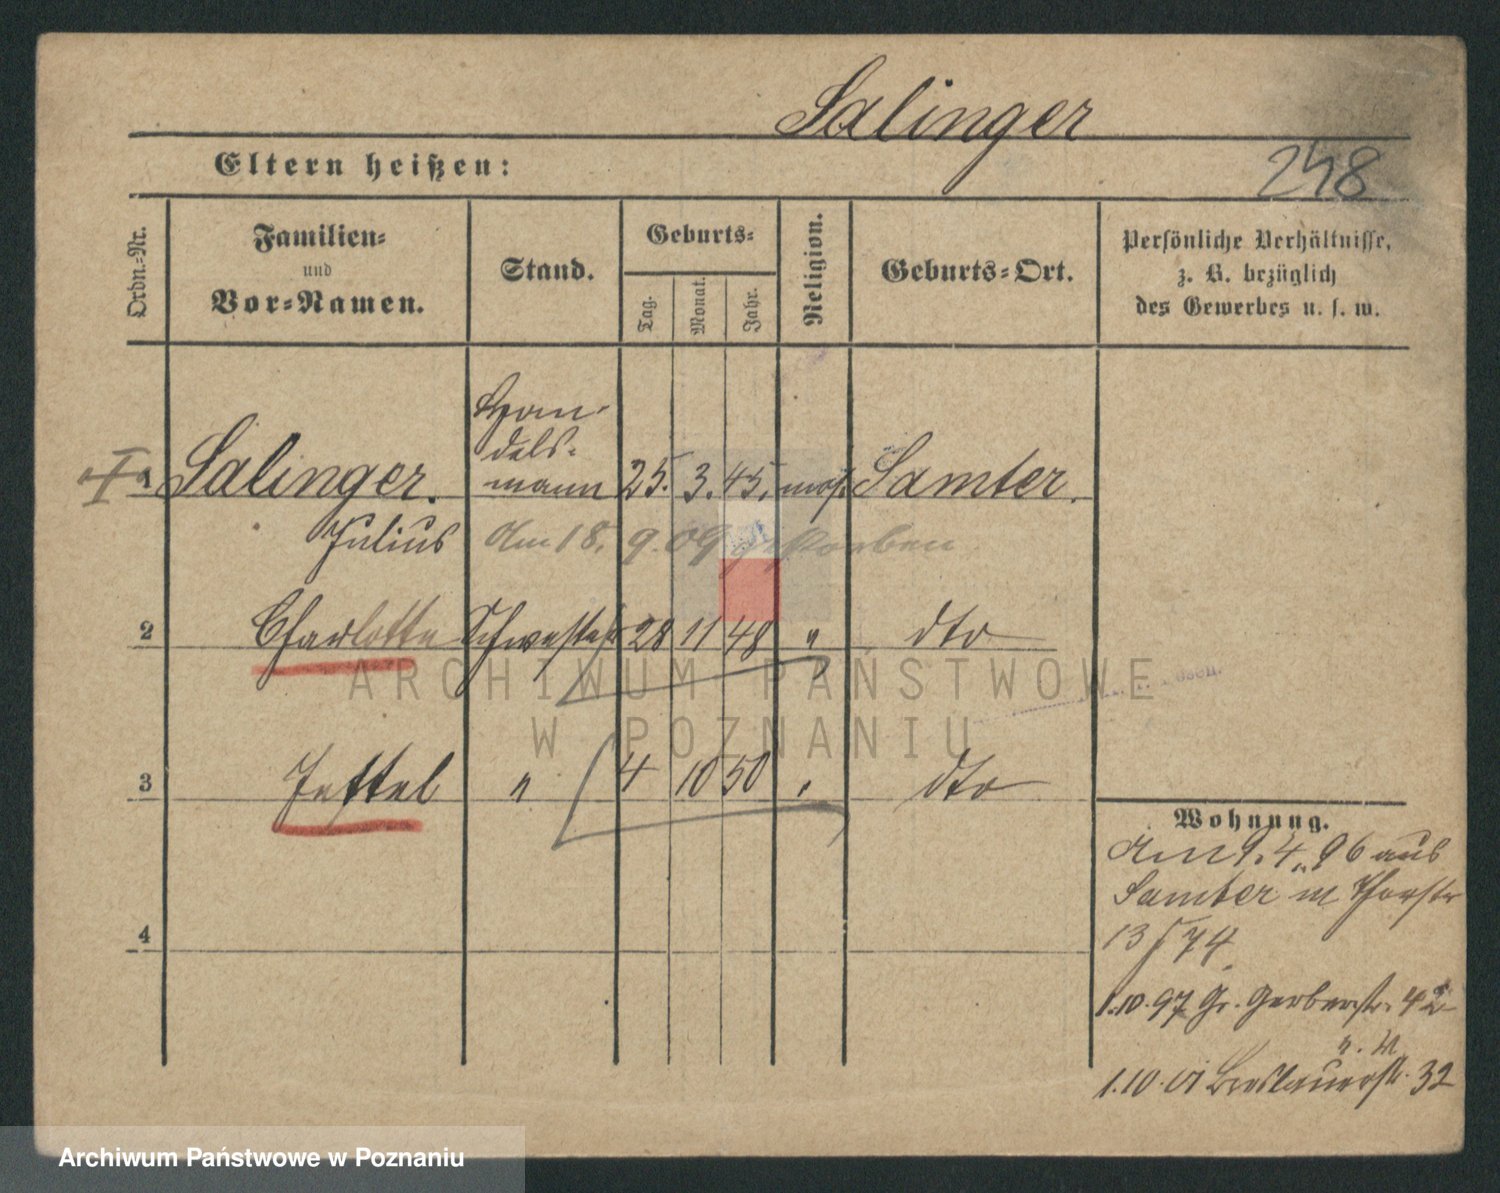 Salinger
Eltern heißen:
248
Ordn.-Nr.
Familien-
und
Vor-Namen.
Stand.
Geburts-
Tag.
Monat.
Jahr.
Religion.
Geburts-Ort.
Persönliche Verhältnisse,
z. B. bezüglich
des Gewerbes u. s. w.
Han-
dels-
1 Salinger. mann 25. 3. 45. mos. Samter.
Julius Am 18. 9. 09 gestorben
2 Charlotte Schwester 28 11 48 " dto
ARCHIWUM PAŃSTWOWE
W POZNANIU
3 Jettel " 4 10 50 " dto
4
Wohnung.
Am 9. 4. 96 aus
Samter n
13 74.
1.10.97 Gr. Gerberstr. 42
1.10.01 Breslauerstr. 32
Archiwum Państwowe w Poznaniu